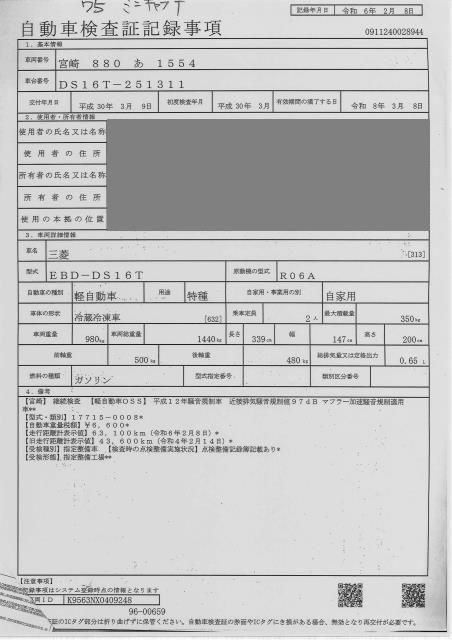 75 ミニキャブT
記録年月日 令和 6年 2月 8日
自動車検査証記録事項
0911240028944
1. 基本情報
車両番号 宮崎 880 あ 1554
車台番号 DS16T-251311
交付年月日 平成30年 3月 9日 初度検査年月 平成30年 3月 有効期間の満了する日 令和 8年 3月 8日
2. 使用者・所有者情報
使用者の氏名又は名称
使用者の住所
所有者の氏名又は名称
所有者の住所
使用の本拠の位置
3. 車両詳細情報
車名 三菱 [313]
型式 EBD-DS16T 原動機の型式 R06A
自動車の種別 軽自動車 用途 特種 自家用・事業用の別 自家用
車体の形状 冷蔵冷凍車 [632] 乗車定員 2人 最大積載量 350kg
車両重量 980kg 車両総重量 1440kg 長さ 339cm 幅 147cm 高さ 200cm
前軸重 500kg 後軸重 480kg 総排気量又は定格出力 0.65 L
燃料の種類 ガソリン 型式指定番号 類別区分番号
4. 備考
【宮崎】 継続検査 【軽自動車OSS】 平成12年騒音規制車 近接排気騒音規制値97dB マフラー加速騒音規制適用
車**
【型式・類別】17715-0008*
【自動車重量税額】¥6,600*
【走行距離計表示値】63,100km (令和6年2月8日)*
【旧走行距離計表示値】43,600km (令和4年2月14日)*
【受検種別】指定整備車 【検査時の点検整備実施状況】点検整備記録簿記載あり*
【受検形態】指定整備工場**
【注意事項】
記録事項はシステム登録時点の情報となります
車両ID K9563NX0409248
96-00659
証のICタグ部分は折り曲げずに保管ください。自動車検査証の券面やICタグにき損がある場合、無効となり再交付が必要です。